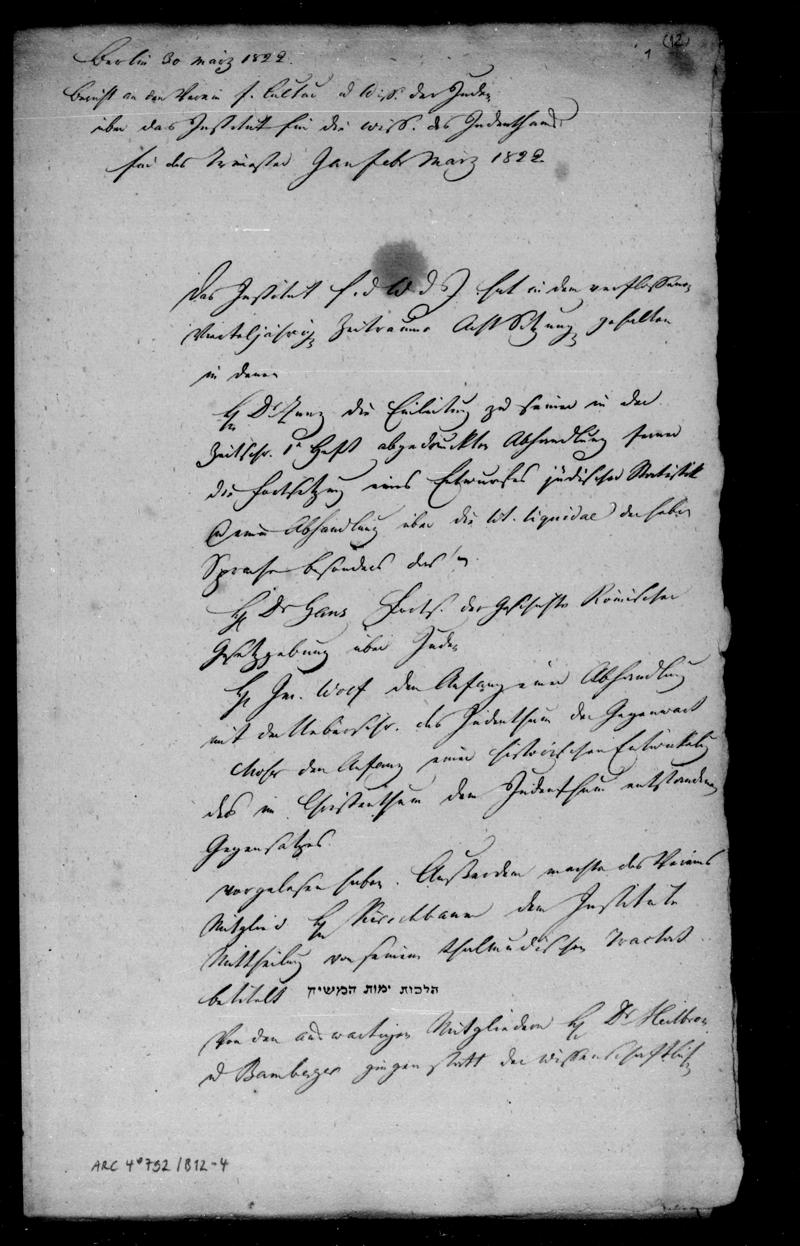 (12)
1
Berlin 30 März 1822.
Bericht an den Verein f. Cultur u Wiss. der Juden
über das Institut für die Wiss. des Judenthums
für das Trimester Jan Febr März 1822
Das Institut f. d W d J hat in dem verflossenen
vierteljährig Zeitraume Acht Sitzungen gehalten
in denen
H Dr Zunz die Einleitung zu seiner in der
Zeitschr. 1s Heft abgedruckten Abhandlung ferner
die Fortsetzung eines Entwurfes jüdischer Statistik
u eine Abhandlung über die lit. liquidae der hebr
Sprache besonders das ר
H Dr Gans Forts. der Geschichte Römischer
Gesetzgebung über Juden
H Im. Wolf den Anfang einer Abhandlung
mit der Ueberschr. das Judenthum der Gegenwart
Moser den Anfang einer historischen Entwickelung
des im Christenthum dem Judenthum entstandenen
Gegensatzes
vorgelesen haben. Außerdem machte des Vereins
Mitglied H Kirschbaum dem Institute
Mittheilung von seinem thalmudischen Tractat
betitelt הלכות ימות המשיח
Von den auswärtigen Mitgliedern H Dr Heilbron
u Bamberger gingen statt der wissenschaftlich
ARC 4° 792/B12-4